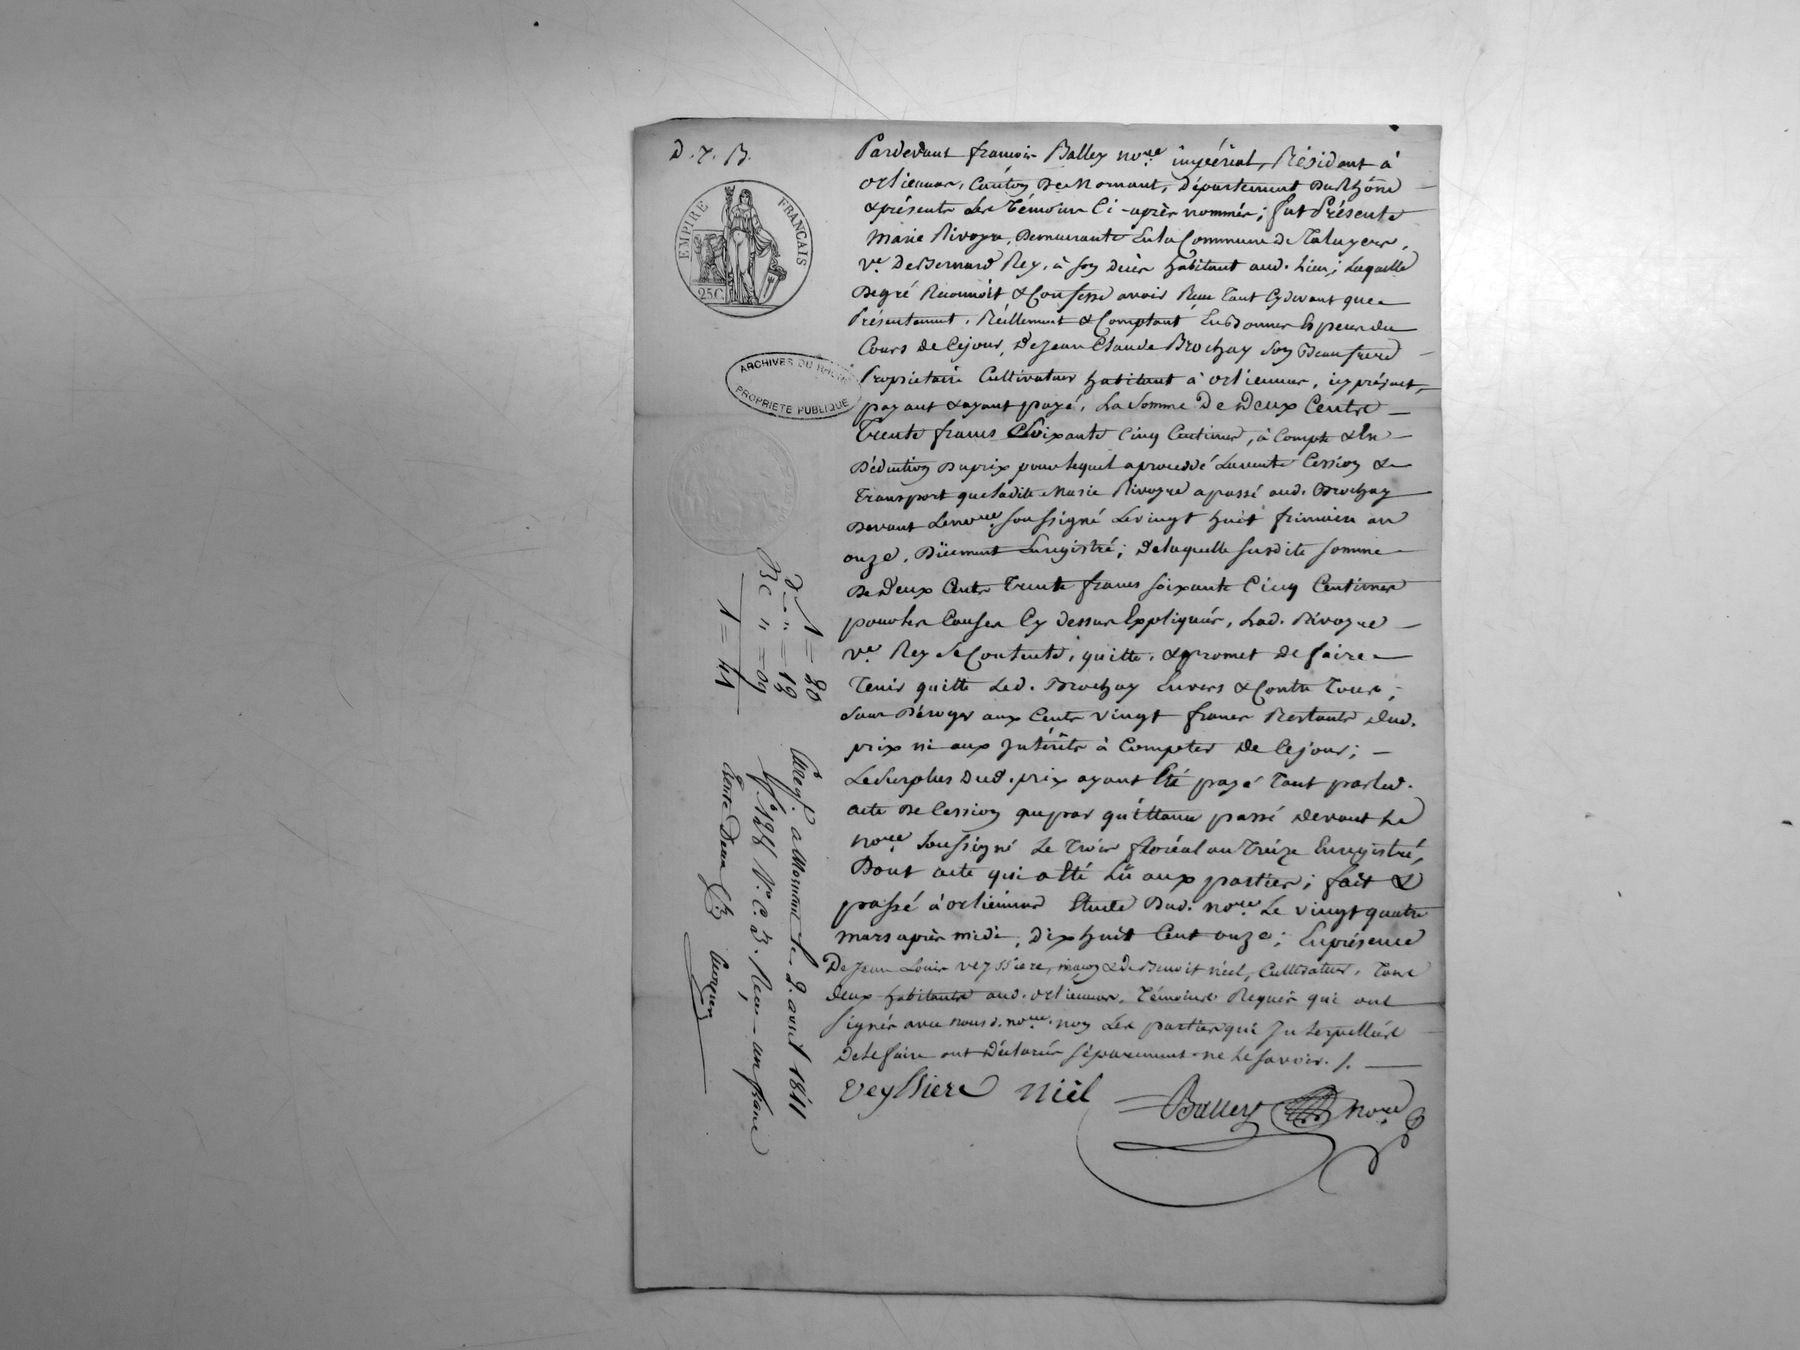 D. 7. B.
EMPIRE FRANÇAIS
25C.
ARCHIVES DU RHÔNE
PROPRIETE PUBLIQUE
Pardevant françois Balley no.re impérial, Résidant à
orlienas, Canton De Mornant, Département Du Rhône
& présents Les Témoins Ci-après nommés; fut Présente
Marie Rivoyre, Demeurante En la Commune de Taluyers,
v.e De Bernard Rey, à son Décès habitant aud. Lieu; Laquelle
De gré Reconnoit & Confesse avoir Reçu Tant Cydevant que
Présentement, Réellement & Comptant En Bonnes Espèces du
Cours de Cejour, De Jean Claude Brochay Son Beaufrere
Propriétaire Cultivateur habitant à orlienas, icy présent,
payant & ayant payé, La Somme De Deux Cents
Trente francs Soixante Cinq Centimes, à Compte & En
Déduction Du prix pour lequel a procédé La vente Cession &
Transport que Ladite Marie Rivoyre a passé aud. Brochay
Devant Le no.re soussigné Le vingt huit frimaire an
onze, Dûement Enregistré; De laquelle susdite somme
De Deux Cents Trente francs soixante Cinq Centimes
pour les Causes Cy dessus Expliquées, Lad. Rivoyre
v.e Rey se Contente, quitte, & promet De faire
Tenir quitte Led. Brochay Envers & Contre Tous;
Sans Déroger aux Cents vingt francs Restants Dud.
prix ni aux Intérêts à Compter De Cejour;
Le Surplus Dud. prix ayant Eté payé Tant par led.
acte De Cession que par quittance passé Devant Le
no.re soussigné Le Trois floréal an Treize Enregistré,
Dont acte qui a été Lû aux parties; fait &
passé à orlienas Etude Dud. no.re Le vingt quatre
mars après midi, Dix huit Cent onze; En présence
De Jean Louis Veyssiere, maçon & de Benoit niel, Cultivateur, Tous
deux habitants aud. orlienas, Témoins Requis qui ont
signés avec nous d. no.re non Les parties qui Interpellées
De le faire ont Déclarés séparément ne le savoir./.
veyssiere nièl Balley no.re
1 = 80
= 18
= 09
1 = 41
Enreg. a Mornant le 2. avril 1811
f.o 128 V.o C. 3. Reçu un franc
trente Deux